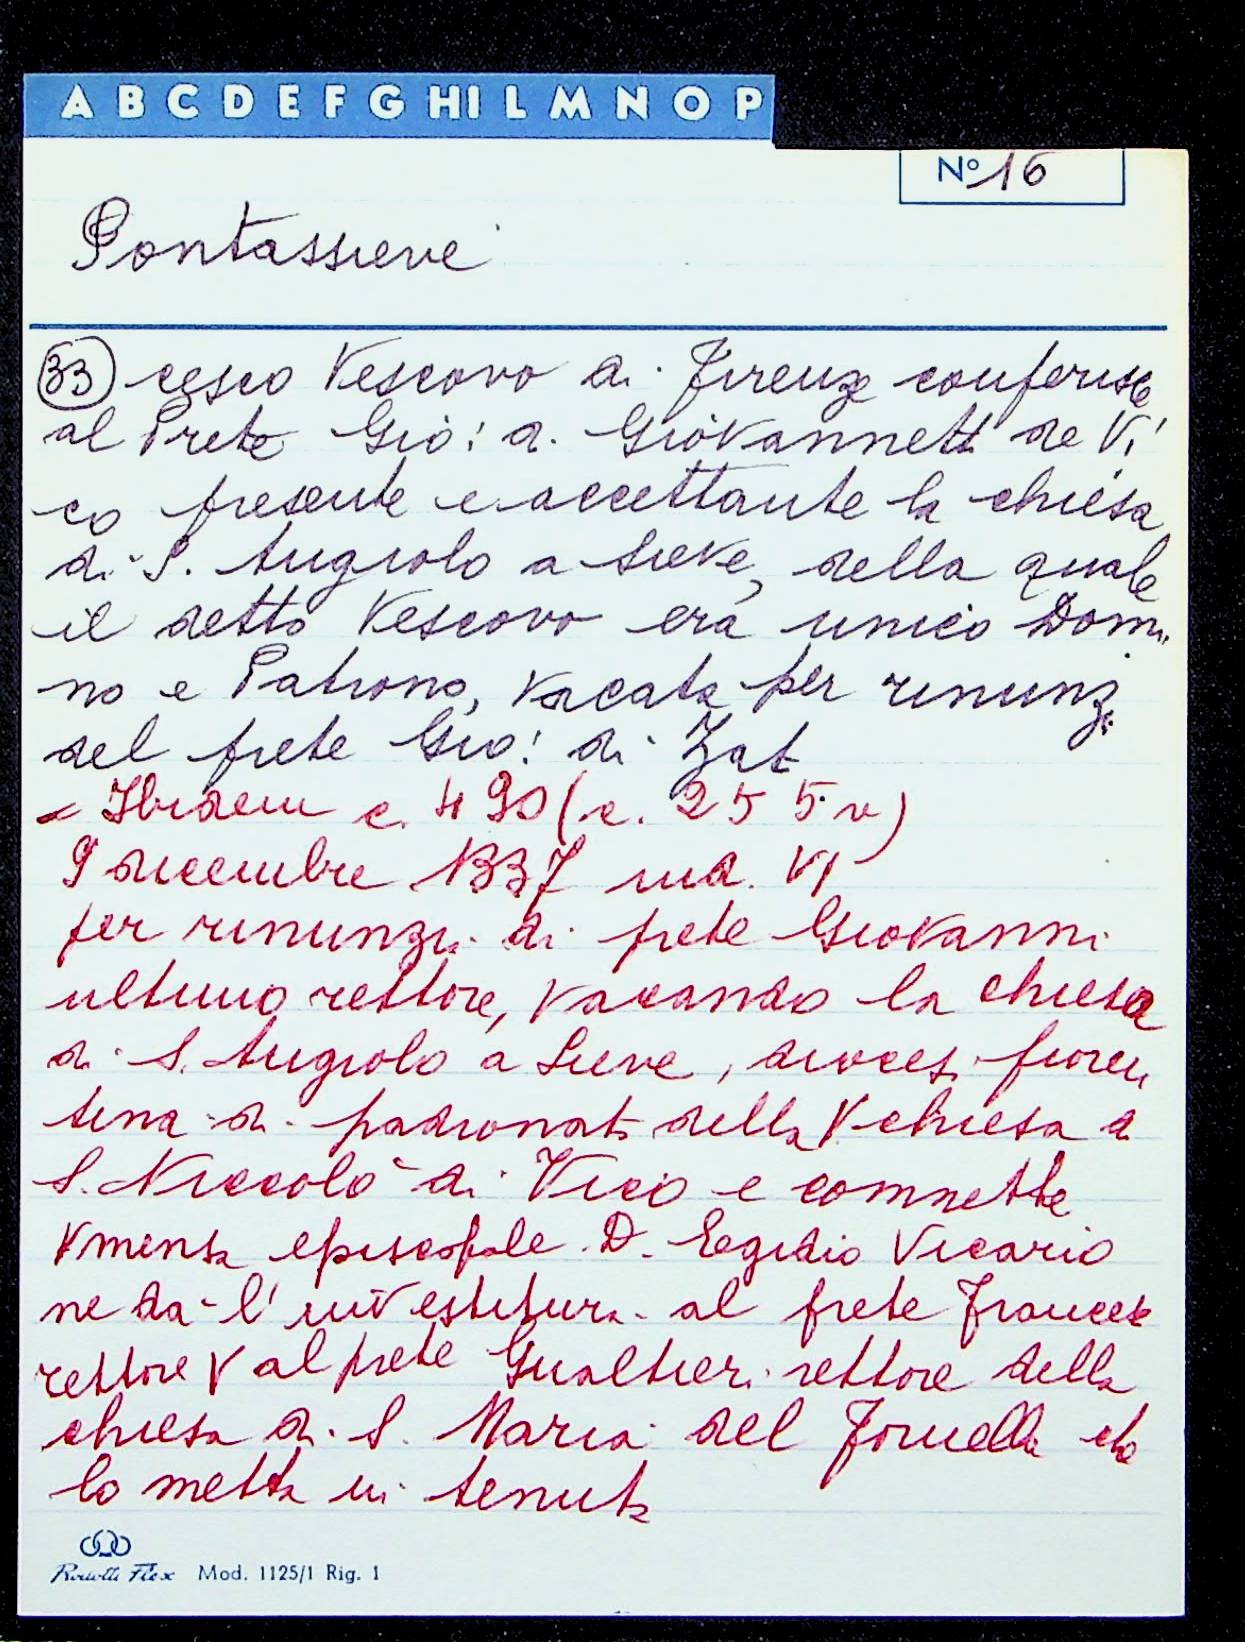 A B C D E F G HI L M N O P
Nº 16
Pontassieve
33 cesco Vescovo di Firenze conferisce
al Prete Gio: di Giovannetti de Vi
co presente e accettante la chiesa
di S. Angiolo a Sieve, della quale
il detto Vescovo era unico Domi
no e Patrono, vacata per rinunzi
del prete Gio: di Zat
= Ibidem c. 490 (c. 255 v)
9 dicembre 1337 ind. VI
per rinunzia di prete Giovanni
ultimo rettore, vacando la chiesa
di S. Angiolo a Sieve, diocesi fioren
tina di padronato della V chiesa di
S. Niccolò di Vico e commette
V mensa episcopale D. Egidio Vicario
ne da l'investitura al prete Francesco
rettore V al prete Gualtieri rettore della
chiesa di S. Maria del Fornello che
lo metta in tenuta
Flex Mod. 1125/1 Rig. 1